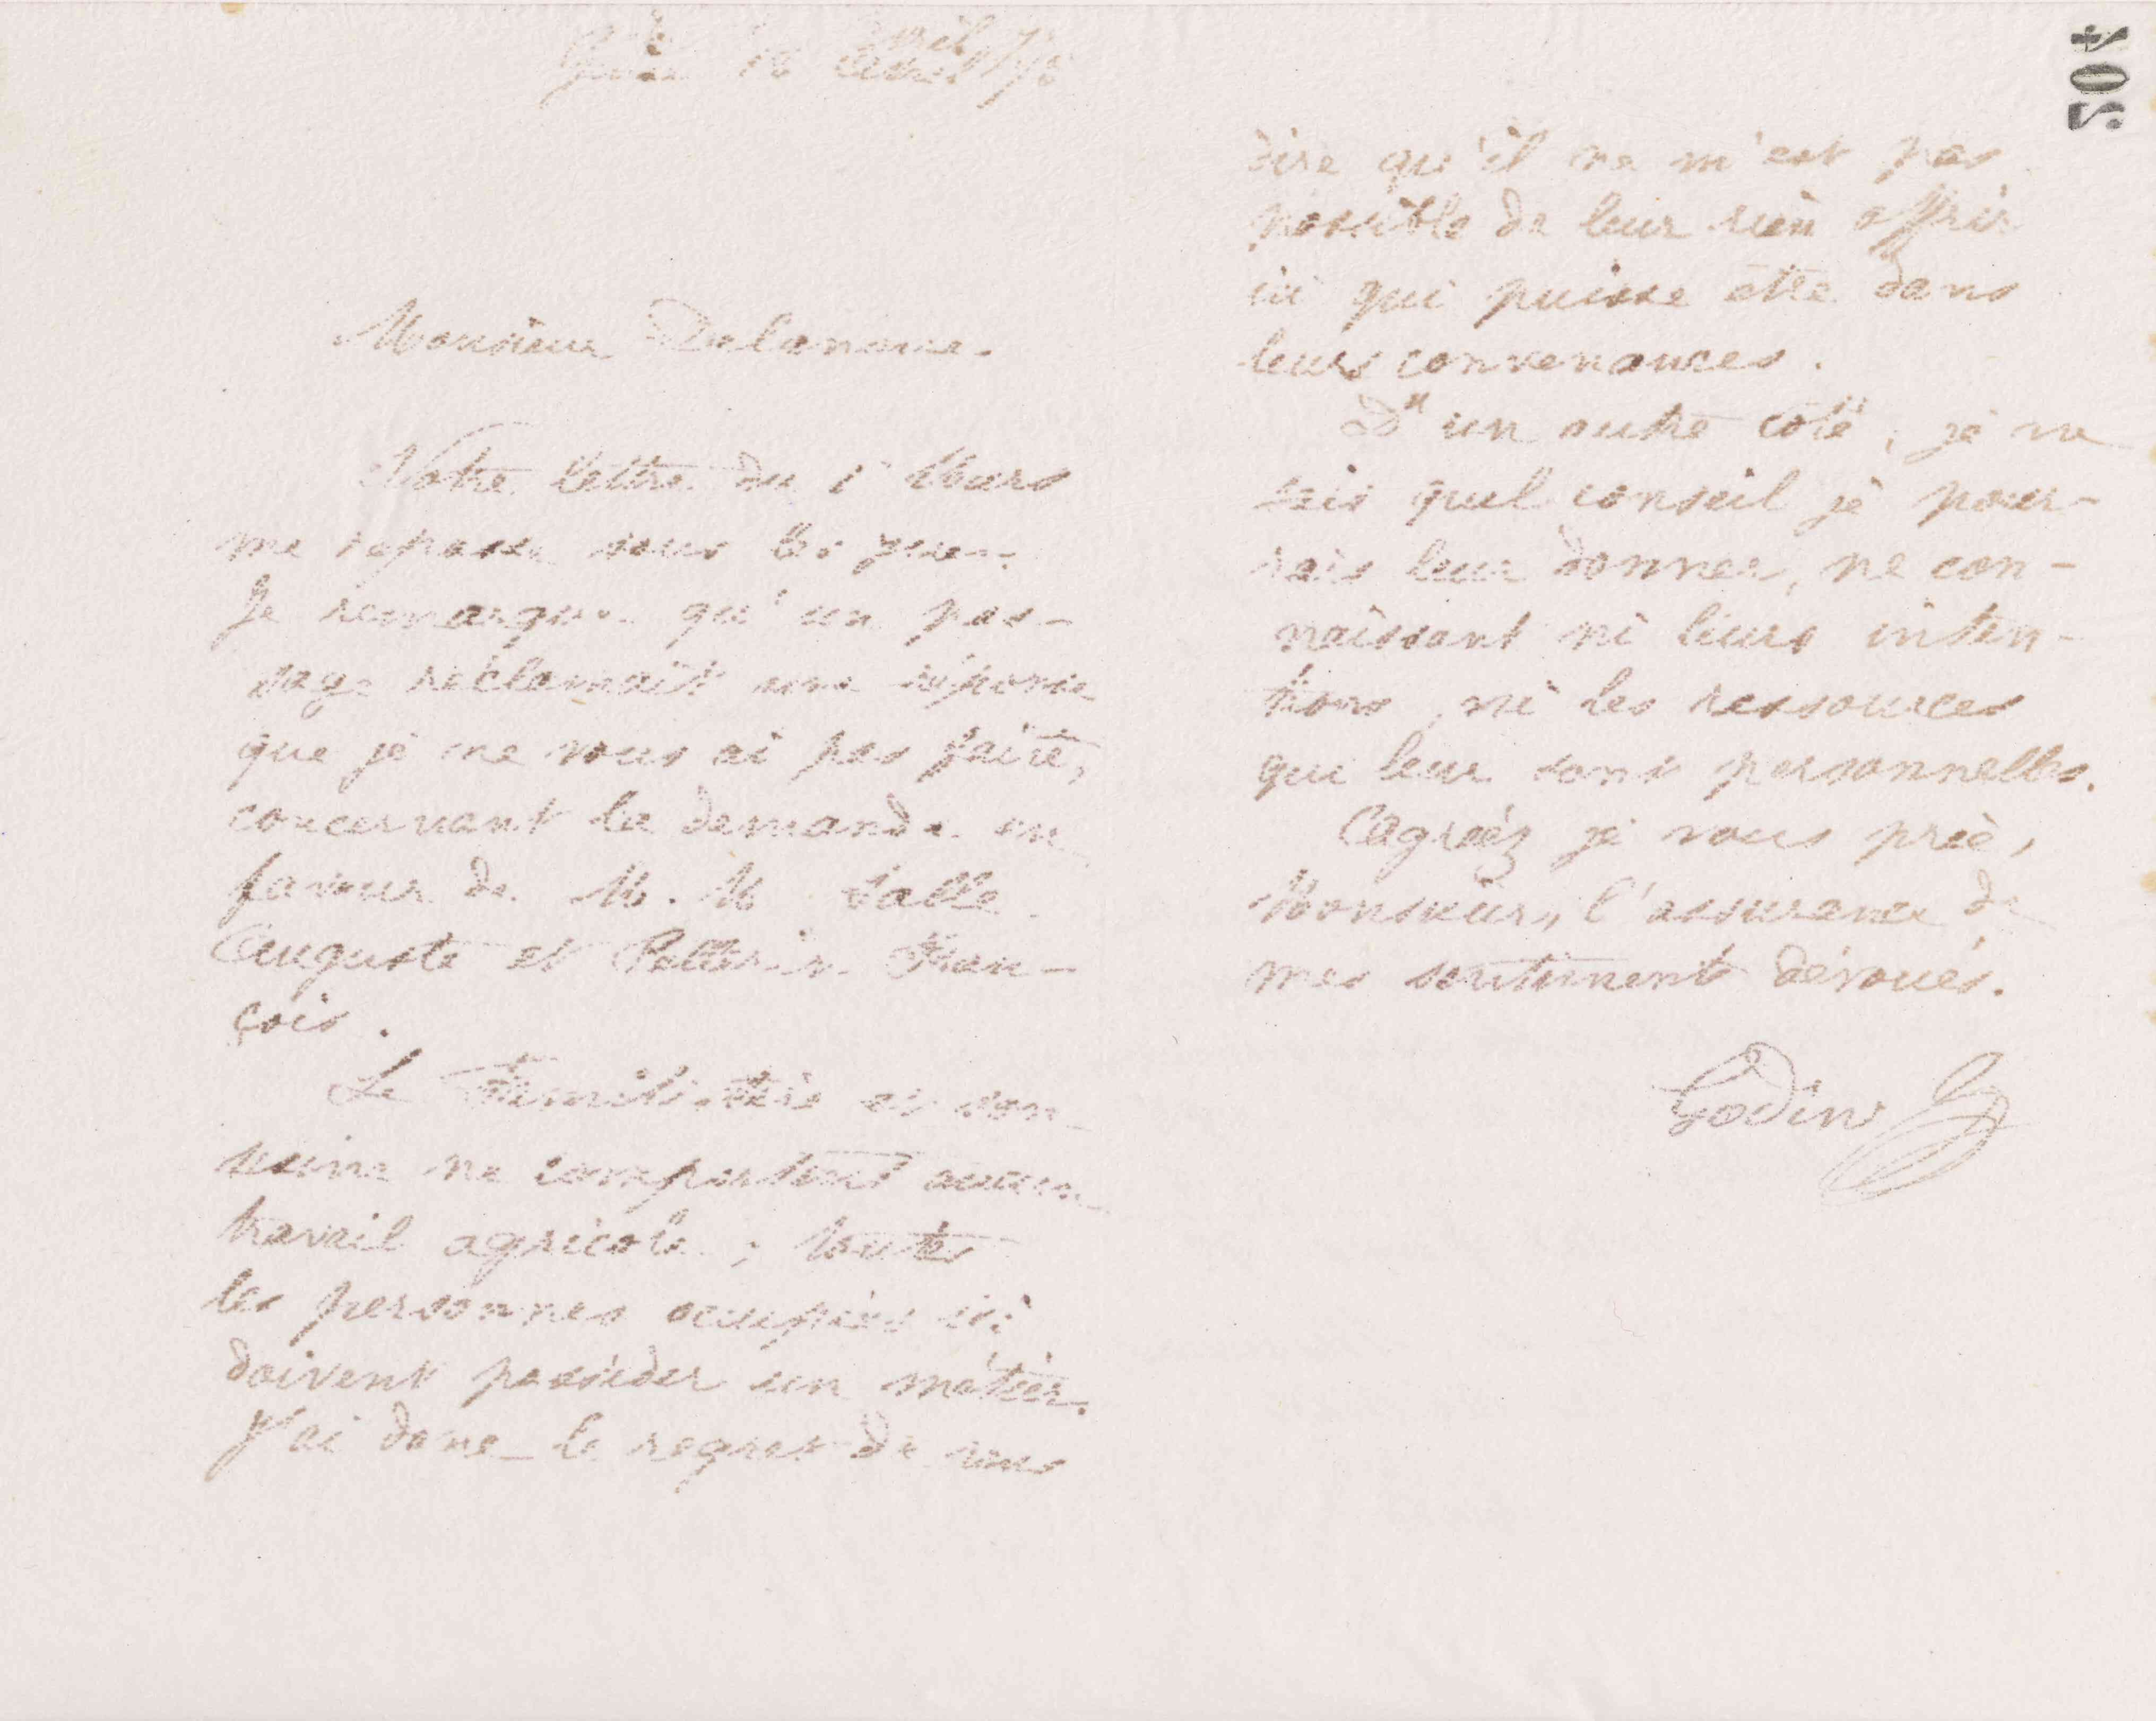 Guise 18 avril 78
Monsieur Delanoue.
Votre lettre du 1er Mars
me repasse sous les yeux.
Je remarque qu'un pas-
sage réclamait une réponse
que je ne vous ai pas faite,
concernant la demande en
faveur de M. M Salle
Auguste et Fran-
çois.
Le Familistère et son
usine ne comportent aucun
travail agricole ; toutes
les personnes occupées ici
doivent posséder un métier.
J'ai donc le regret de vous
dire qu'il ne m'est pas
possible de leur rien offrir
ici qui puisse être dans
leurs convenances.
D'un autre côté, je ne
sais quel conseil je pour-
rais leur donner, ne con-
naissant ni leurs inten-
tions, ni les ressources
qui leur sont personnelles.
Agréez je vous prie,
Monsieur, l'assurance de
mes sentiments dévoués.
Godin
402